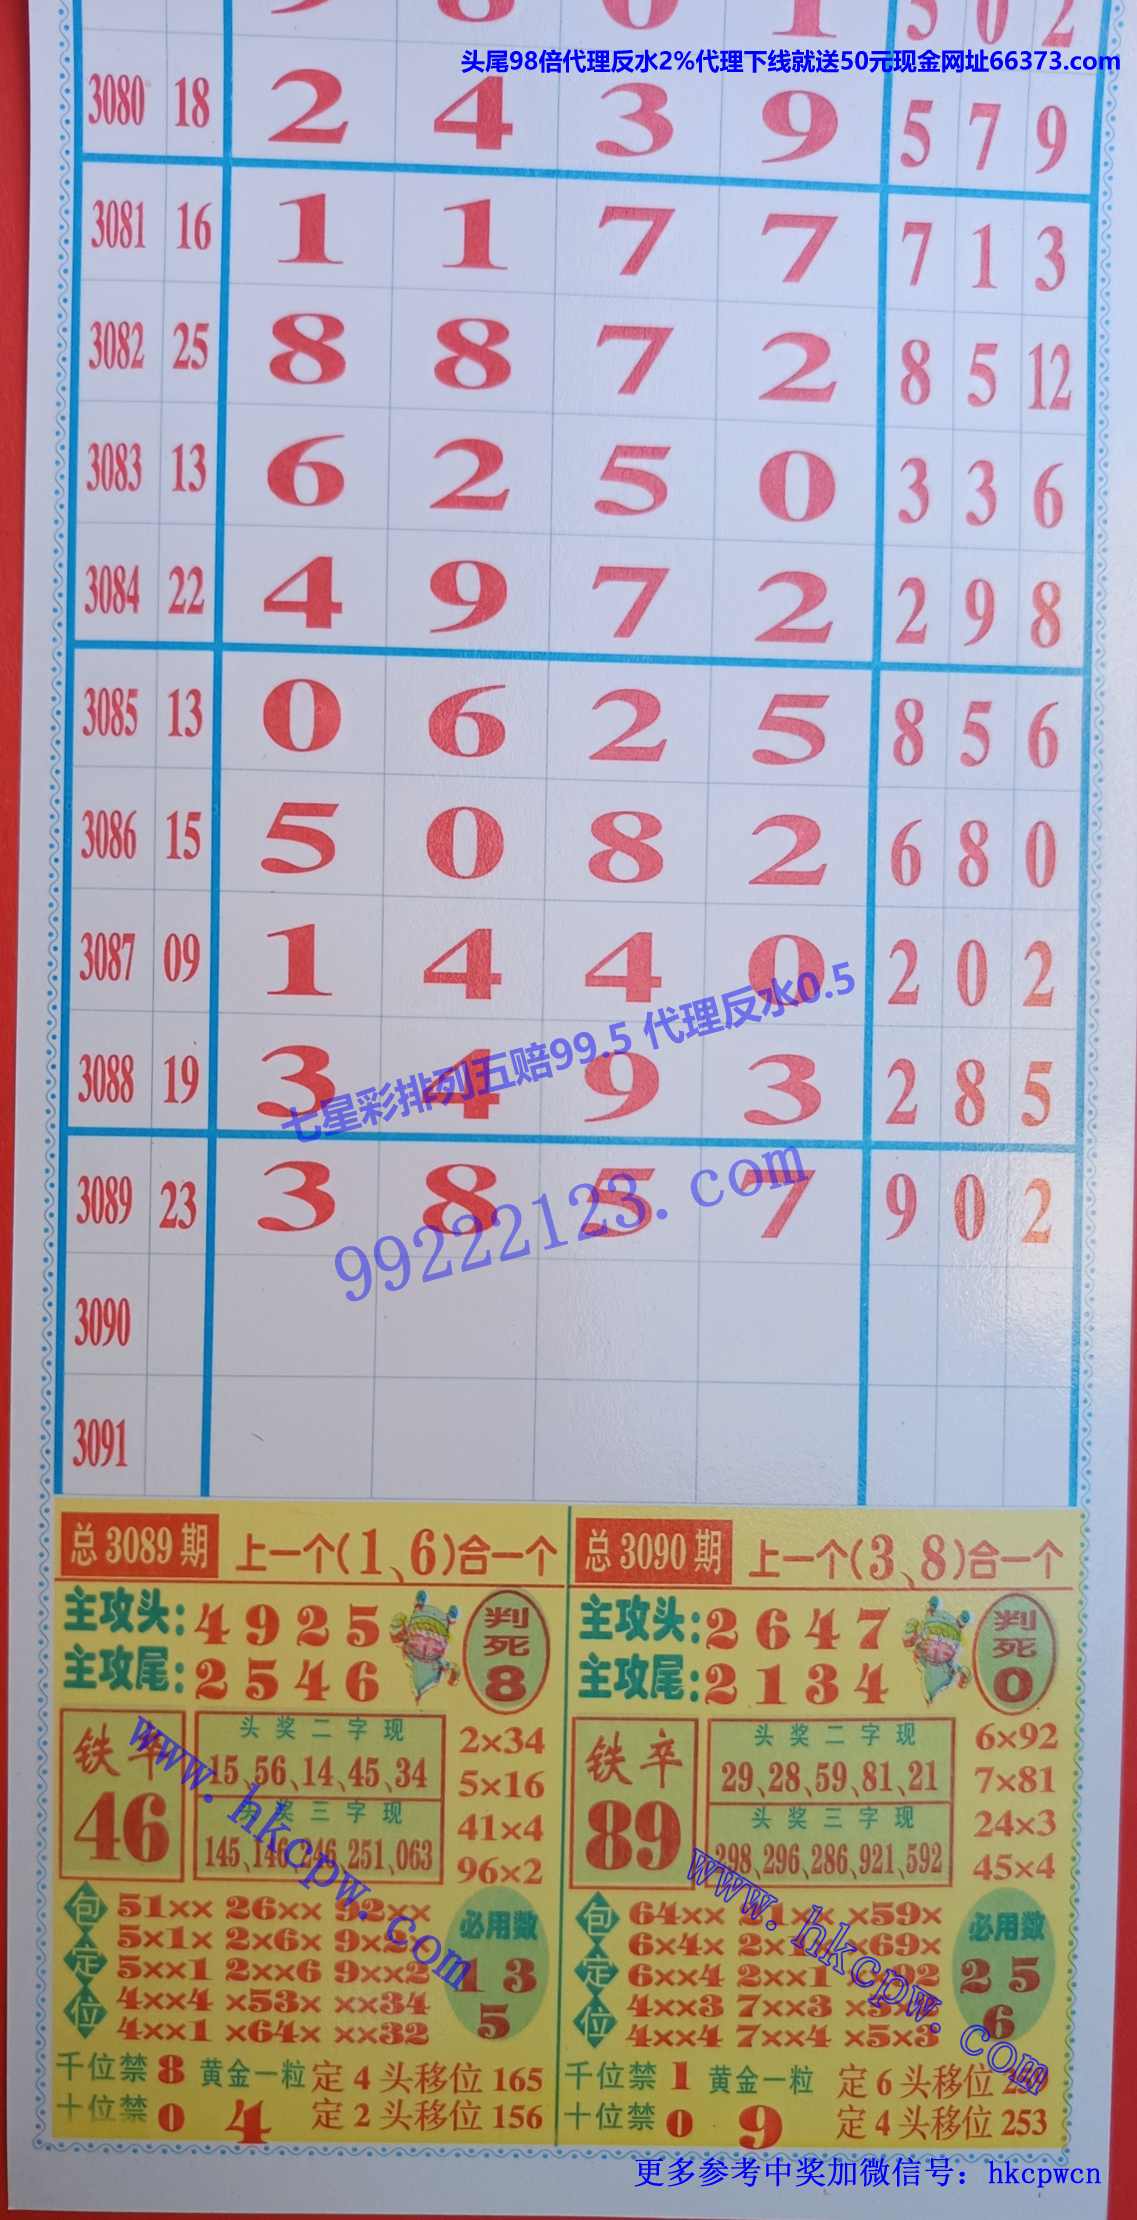 5 0 2
头尾98倍代理反水2%代理下线就送50元现金网址66373.com
3080 18 2 4 3 9 5 7 9
3081 16 1 1 7 7 7 1 3
3082 25 8 8 7 2 8 5 12
3083 13 6 2 5 0 3 3 6
3084 22 4 9 7 2 2 9 8
3085 13 0 6 2 5 8 5 6
3086 15 5 0 8 2 6 8 0
3087 09 1 4 4 0 2 0 2
七星彩排列五赔99.5 代理反水0.5
3088 19 3 4 9 3 2 8 5
3089 23 3 8 5 7 9 0 2
99222123.com
3090
3091
总3089期 上一个(1、6)合一个
主攻头:4 9 2 5
主攻尾:2 5 4 6
判死8
铁卒
46
头奖二字现
15、56、14、45、34
头奖三字现
145、146、246、251、063
2×34
5×16
41×4
96×2
包定位
51×× 26×× 92××
5×1× 2×6×
5××1 2××6 9××2
4××4 ×53× ××34
4××1 ×64× ××32
必用数
1 3
5
千位禁 8 黄金一粒 定4头移位165
十位禁 0 4 定2头移位156
www.hkcpw.com
总3090期 上一个(3、8)合一个
主攻头:2 6 4 7
主攻尾:2 1 3 4
判死0
铁卒
89
头奖二字现
29、28、59、81、21
头奖三字现
298、296、286、921、592
6×92
7×81
24×3
45×4
包定位
64×× 21×× ×59×
6×4× ×69×
6××4 2××1
4××3 7××3
4××4 7××4 ×5×3
必用数
2 5
6
千位禁 1 黄金一粒 定6头移位
十位禁 0 9 定4头移位253
www.hkcpw.com
更多参考中奖加微信号：hkcpwcn